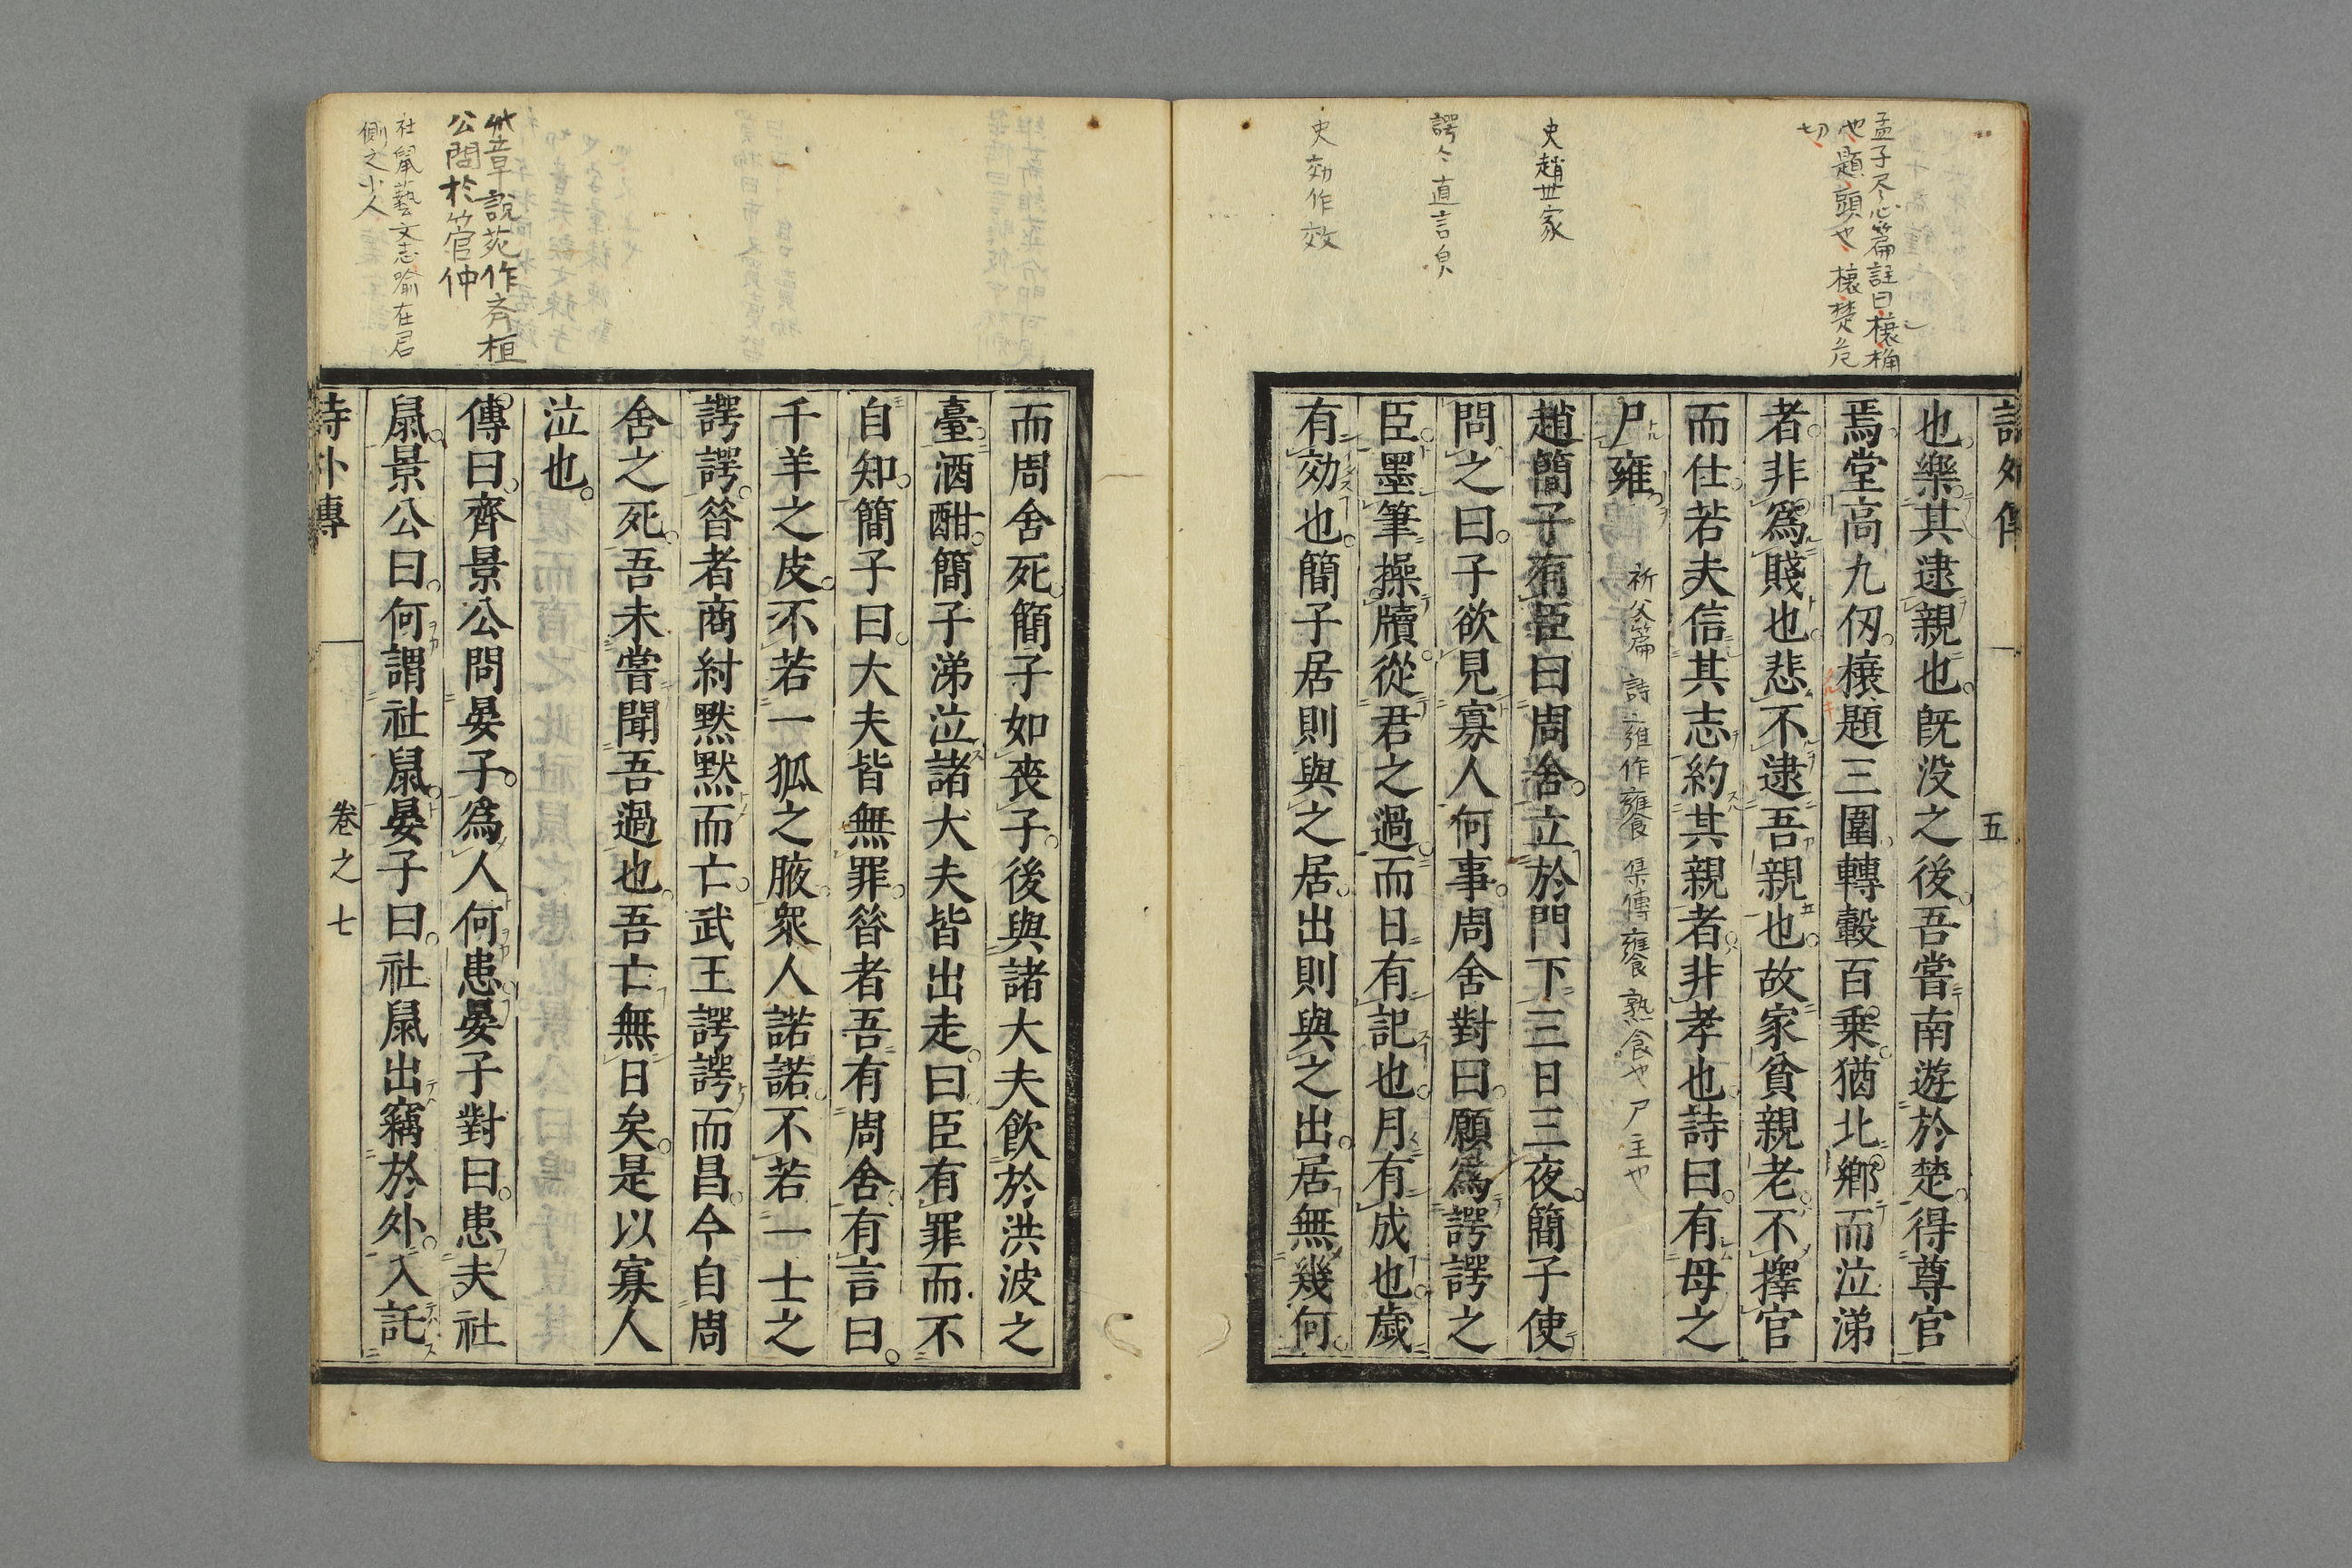 孟子尽心篇註曰榱桷
也題頭也榱楚危
切
史趙世家
諤々直言皃
史効作效
也樂其逮親也既没之後吾嘗南遊於楚得尊官
焉堂高九仞榱題三圍轉轂百乗猶北郷而泣涕
者非爲賤也悲不逮吾親也故家貧親老不擇官
而仕若夫信其志約其親者非孝也詩曰有母之
尸雍
祈父篇 詩雍作饔 集傳饔熟食也尸主也
趙簡子有臣曰周舍立於門下三日三夜簡子使
問之曰子欲見寡人何事周舍對曰願爲諤諤之
臣墨筆操牘從君之過而日有記也月有成也歳
有効也簡子居則與之居出則與之出居無幾何
五
此章説苑作斉桓
公問於管仲
社鼠藝文志喩在君
側之小人
而周舍死簡子如喪子後與諸大夫飲於洪波之
臺酒酣簡子涕泣諸大夫皆出走曰臣有罪而不
自知簡子曰大夫皆無罪昔者吾有周舍有言曰
千羊之皮不若一狐之腋衆人諾諾不若一士之
諤諤昔者商紂黙黙而亡武王諤諤而昌今自周
舍之死吾未嘗聞吾過也吾亡無日矣是以寡人
泣也
傳曰齊景公問晏子爲人何患晏子對曰患夫社
鼠景公曰何謂社鼠晏子曰社鼠出竊於外入託
詩外傳 卷之七